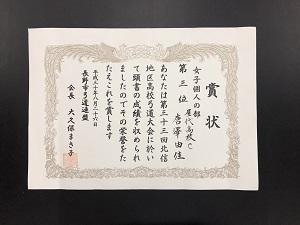 賞状
女子個人の部
屋代高校C
第三位 唐澤由佳
あなたは第三十三回北信
地区高校弓道大会に於い
て頭書の成績を収められ
ましたのでその栄誉をた
たえこれを賞します
平成三十年八月二十六日
長野市弓道連盟
会長 大久保まき子